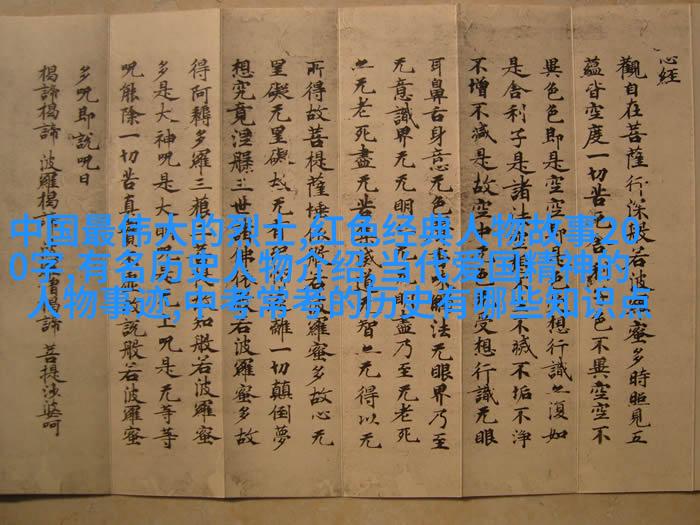 中国最伟大的烈士,红色经典人物故事20
0字,有名历史人物介绍,当代爱国精神的
人物事迹,中考常考的历史有哪些知识点
心经
觀自在菩薩行深般若波羅蜜多時照見五
蘊皆空度一切苦厄 色不異空空不
異色色即是空空即是色 想行識亦復如
是舍利子是諸法 不滅不垢不淨
不增不減是故空中 色 受想行識无眼
耳鼻舌身意无色 法无眼界乃至
无意識界无无明 盡乃至无老死
亦无老死盡无苦 道 智亦无得以无
所得故菩提薩埵 若波羅蜜多故心无
罣礙无罣礙故无 離一切顛倒夢
想究竟涅槃三世 佛依 若波羅蜜多故
得阿耨多羅三藐 知般若波羅蜜
多是大神呪是大明 上呪是无等等
呪能除一切苦真實 虛故說般若波羅蜜
多呪即說呪曰
揭諦揭諦 波羅揭諦 僧揭諦 菩提 婆呵